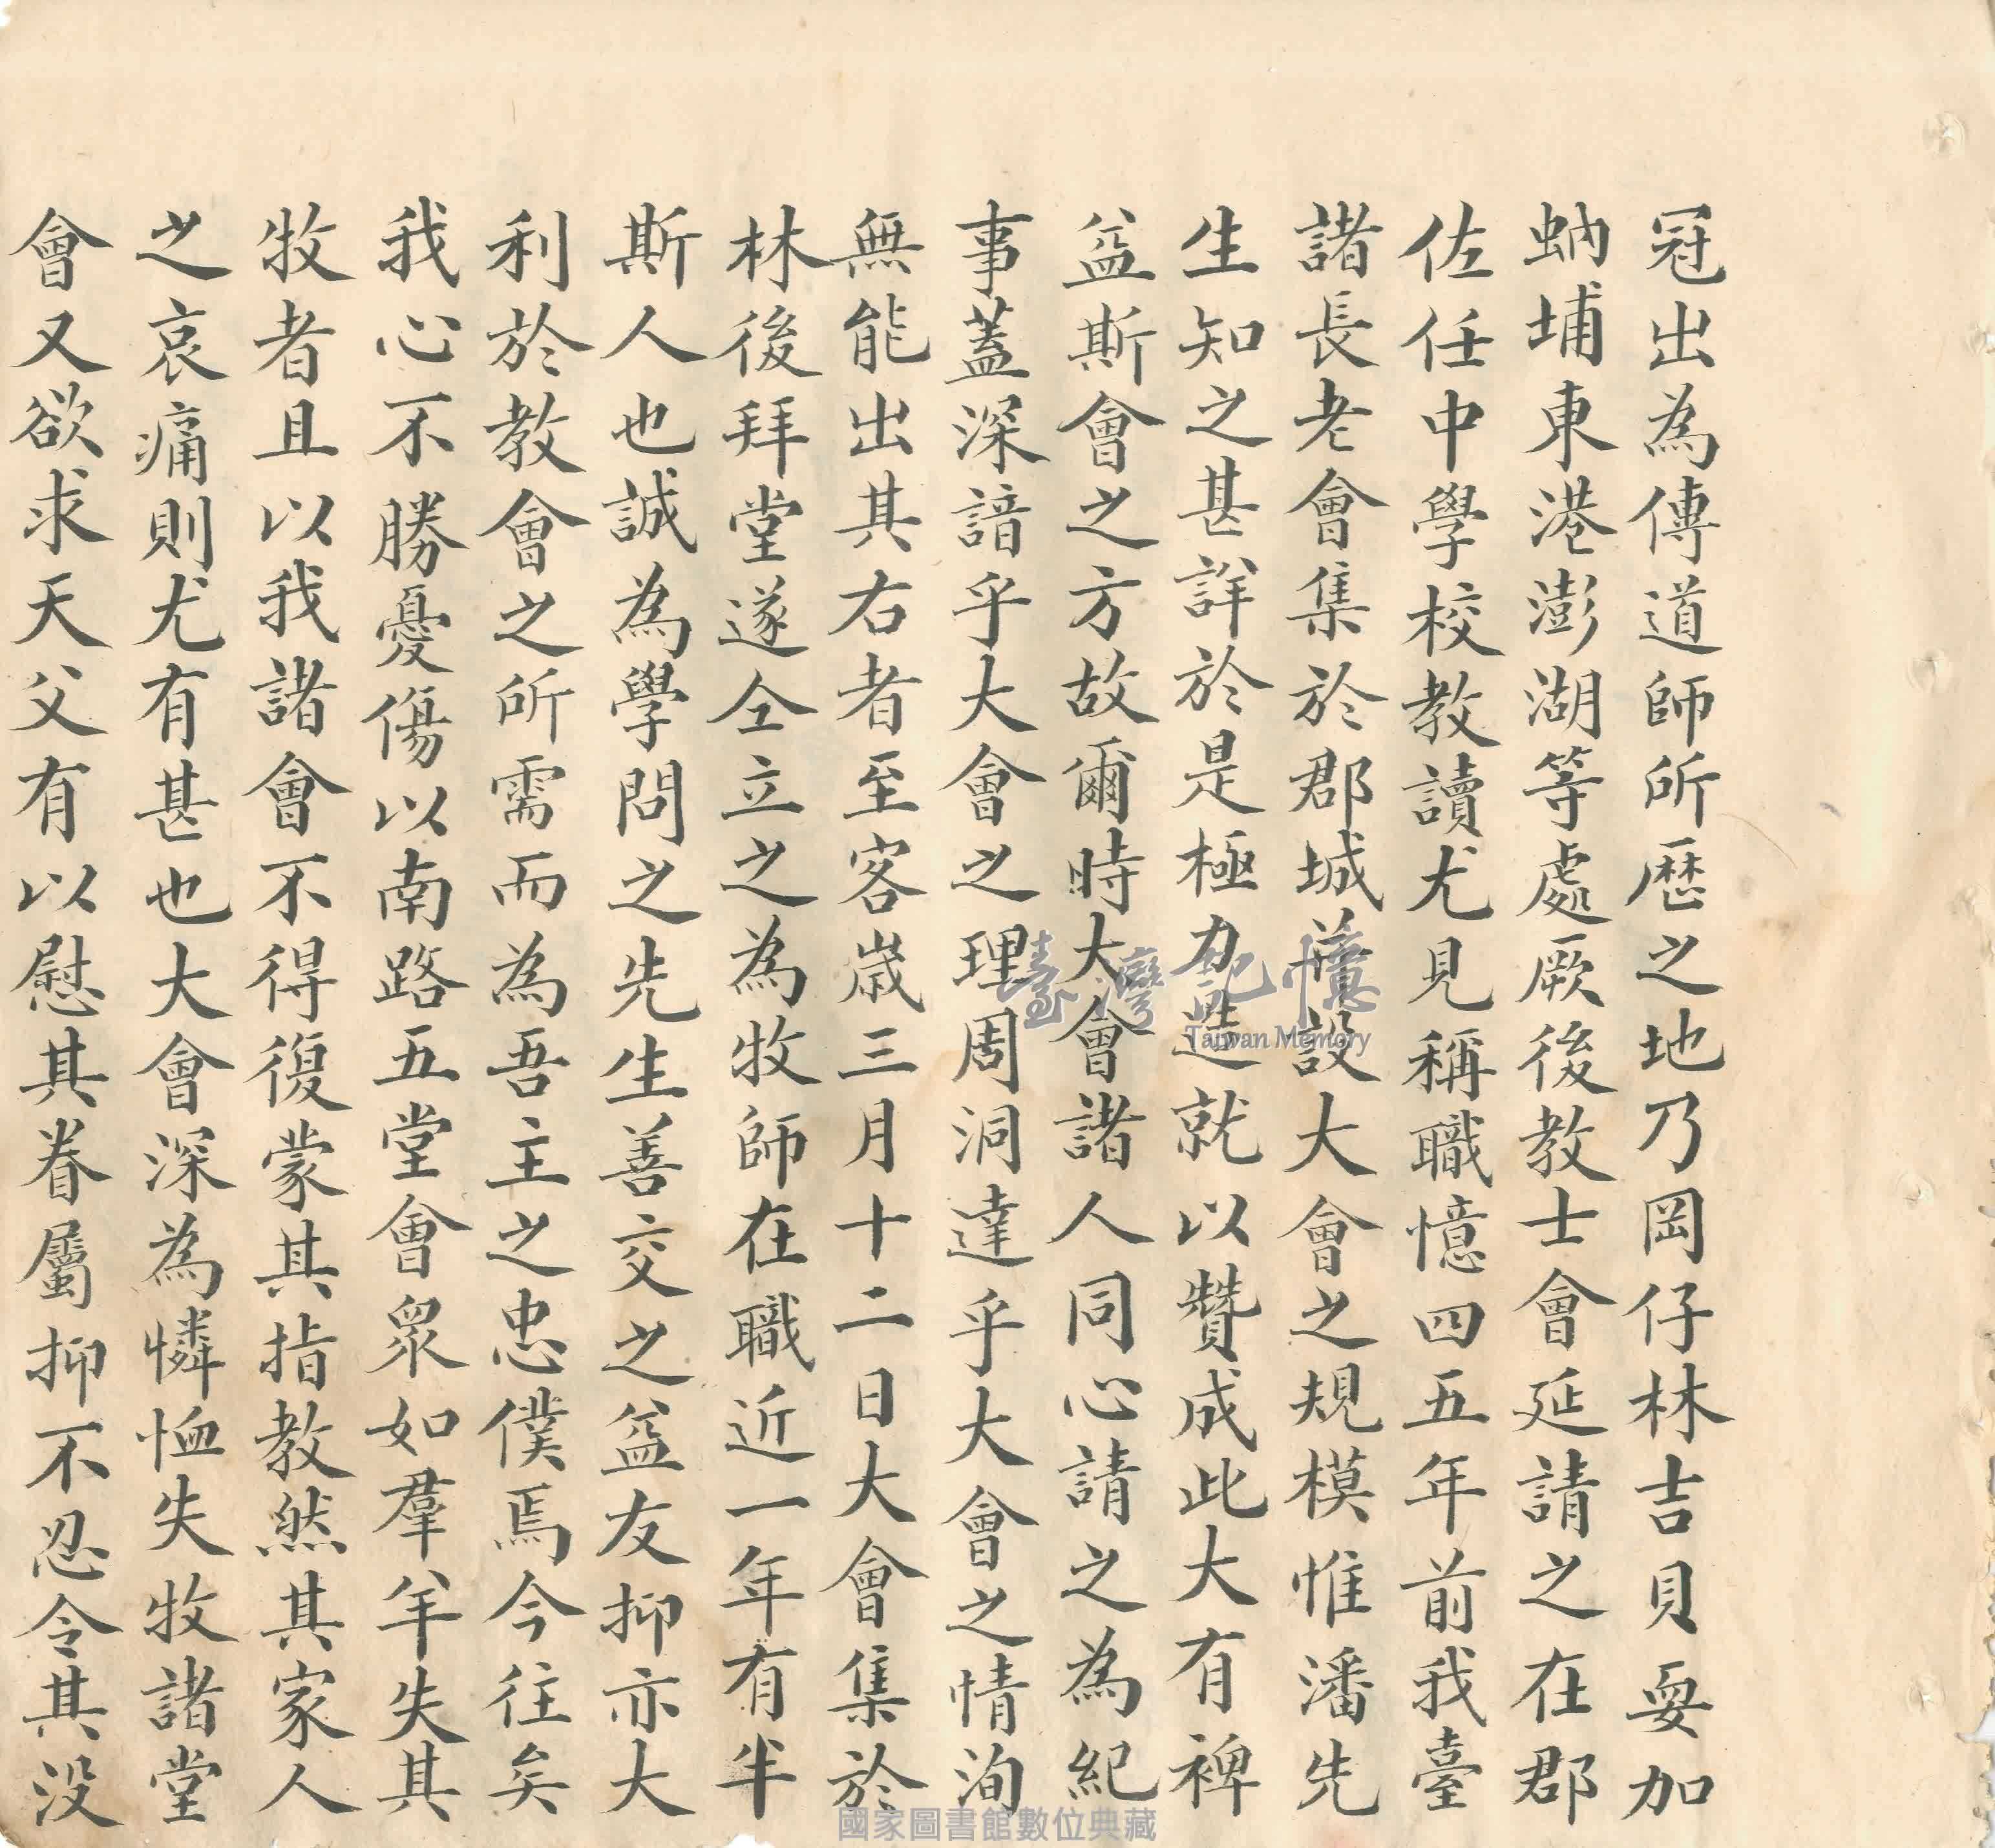 冠出為傳道師所歷之地乃岡仔林吉貝耍加
蚋埔東港澎湖等處厥後教士會延請之在郡
佐任中學校教讀尤見稱職憶四五年前我臺
諸長老會集於郡城議設大會之規模惟潘先
生知之甚詳於是極力造就以贊成此大有裨
益斯會之方故爾時大會諸人同心請之為紀
事蓋深諳乎大會之理周洞達乎大會之情洵
無能出其右者至客歲三月十二日大會集於
林後拜堂遂仝立之為牧師在職近一年有半
斯人也誠為學問之先生善交之益友抑亦大
利於教會之所需而為吾主之忠僕焉今往矣
我心不勝憂傷以南路五堂會眾如羣羊失其
牧者且以我諸會不得復蒙其指教然其家人
之哀痛則尤有甚也大會深為憐恤失牧諸堂
會又欲求天父有以慰其眷屬抑不忍令其没
臺灣記憶
Taiwan Memory
國家圖書館數位典藏